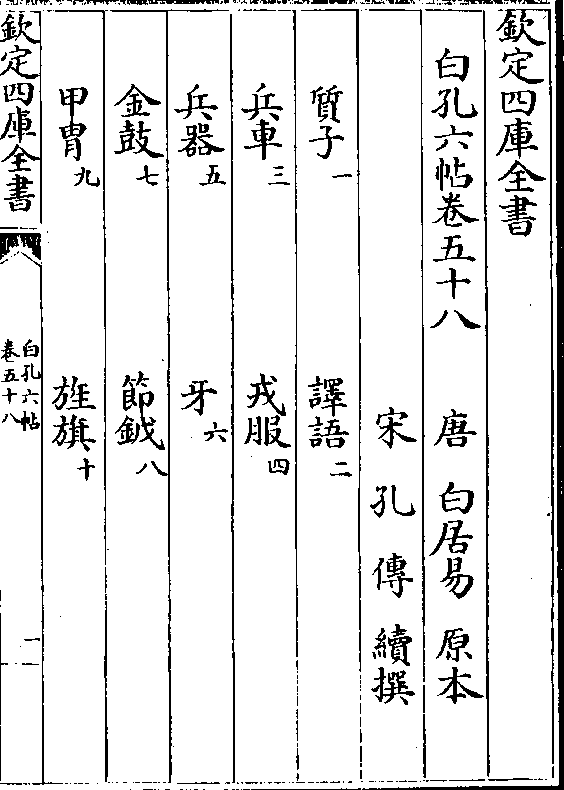 欽定四庫全書
白孔六帖卷五十八 唐 白居易 原本
宋 孔 傳 續撰
質子一 譯語二
兵車三 戎服四
兵器五 牙六
金鼓七 節鉞八
甲胄九 旌旗十
欽定四庫全書
白孔六帖
卷五十八
一